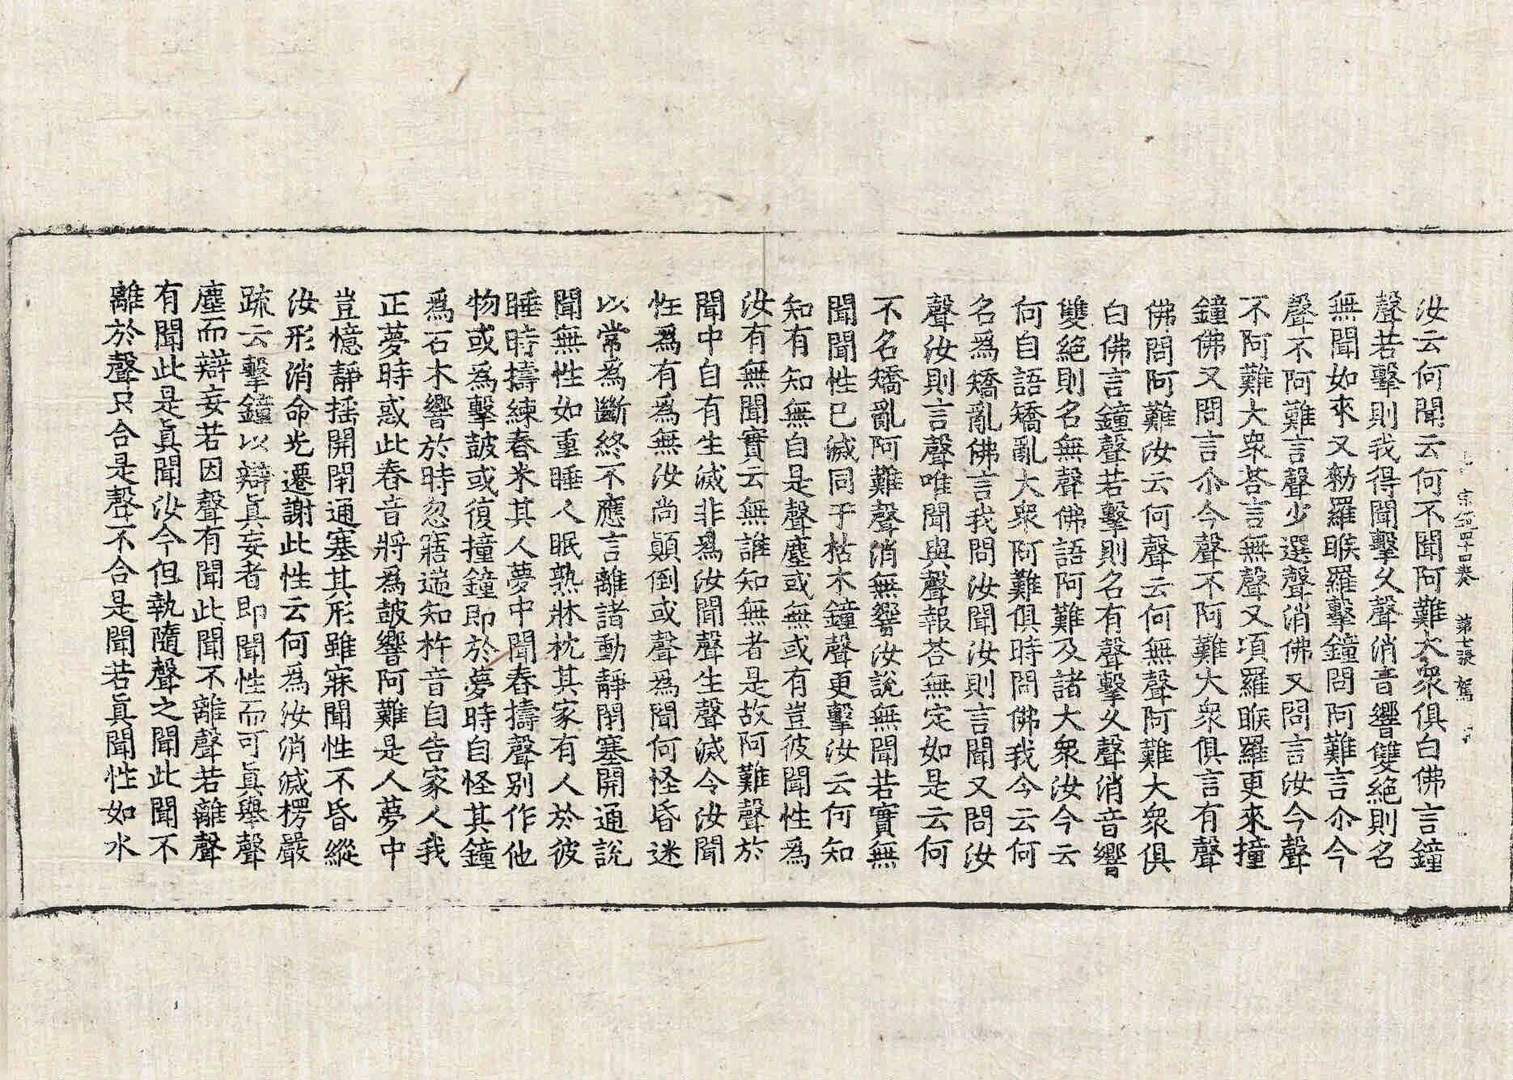 汝云何聞云何不聞阿難大衆俱白佛言鐘
聲若擊則我得聞擊久聲消音響雙絕則名
無聞如來又勑羅睺羅擊鐘問阿難言尒今
聲不阿難言聲少選聲消佛又問言汝今聲
不阿難大衆荅言無聲又頃羅睺羅更來撞
鐘佛又問言尒今聲不阿難大衆俱言有聲
佛問阿難汝云何聲云何無聲阿難大衆俱
白佛言鐘聲若擊則名有聲擊久聲消音響
雙絕則名無聲佛語阿難及諸大衆汝今云
何自語矯亂大衆阿難俱時問佛我今云何
名爲矯亂佛言我問汝聞汝則言聞又問汝
聲汝則言聲唯聞與聲報荅無定如是云何
不名矯亂阿難聲消無響汝說無聞若實無
聞聞性已滅同于枯木鐘聲更擊汝云何知
知有知無自是聲塵或無或有豈彼聞性爲
汝有無聞實云無誰知無者是故阿難聲於
聞中自有生滅非爲汝聞聲生聲滅令汝聞
性爲有爲無汝尚顚倒或聲爲聞何怪昏迷
以常爲斷終不應言離諸動靜閇塞開通說
聞無性如重睡人眠熟牀枕其家有人於彼
睡時擣練舂米其人夢中聞舂擣聲別作他
物或爲擊皷或復撞鐘即於夢時自怪其鐘
爲石木響於時忽寤遄知杵音自告家人我
正夢時惑此舂音將爲皷響阿難是人夢中
豈憶靜搖開閇通塞其形雖寐聞性不昏縱
汝形消命光遷謝此性云何爲汝消滅楞嚴
疏云擊鐘以辯眞妄者即聞性而可眞舉聲
塵而辯妄若因聲有聞此聞不離聲若離聲
有聞此是眞聞汝今但執隨聲之聞此聞不
離於聲只合是聲不合是聞若眞聞性如水